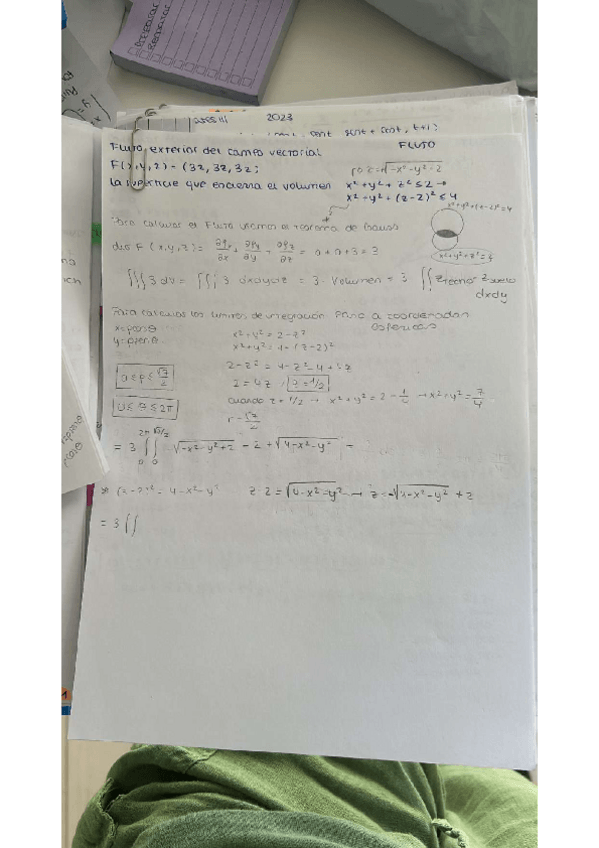 Preparar
Repasar
2023
Flujo exterior del campo vectorial FLUJO
F(x,y,z) = (3z, 3z, 3z)
la superficie que encierra el volumen x²+y²+z² ≤ 2 →
x²+y²+(z-2)² ≤ 4
x²+y²+(z-2)²=4
Para calcular el Flujo usamos el teorema de Gauss
div F (x,y,z) = ∂Fx/∂x + ∂Fy/∂y + ∂Fz/∂z = 0 + 0 + 3 = 3
∭ 3 dv = ∭ 3 dxdydz = 3 · Volumen = 3 ∬ z techo - z suelo
dxdy
Para calcular los limites de integración paso a coordenadas
esfericas
x=ρcosθ x²+y² = 2-z²
y=ρsenθ x²+y² = 4-(z-2)²
2-z² = 4-z²-4+4z
0≤ρ≤√7/2 2=4z, z=1/2
cuando z=1/2 → x²+y² = 2-1/4 → x²+y²=7/4
0≤θ≤2π r=√7/2
= 3 ∫₀^2π ∫₀^√7/2 √-x²-y²+2 - 2 + √4-x²-y² =
(z-2)² = 4-x²-y² z-2=√4-x²-y² → z=-√4-x²-y² +2
= 3 ∬